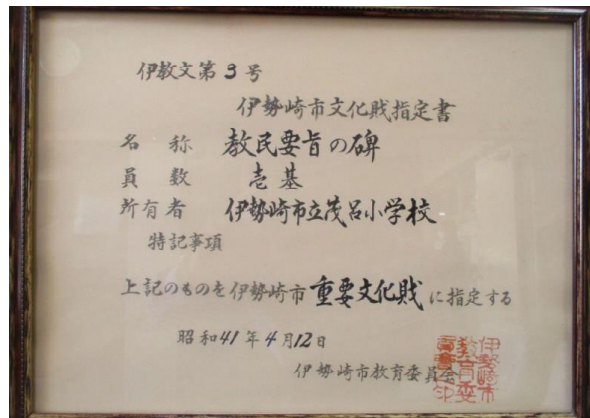 伊教文第3号
伊勢崎市文化財指定書
名称 教民要旨の碑
員数 壱基
所有者 伊勢崎市立茂呂小学校
特記事項
上記のものを伊勢崎市重要文化財に指定する
昭和41年4月12日
伊勢崎市教育委員会
伊勢崎市
教育委
員会印